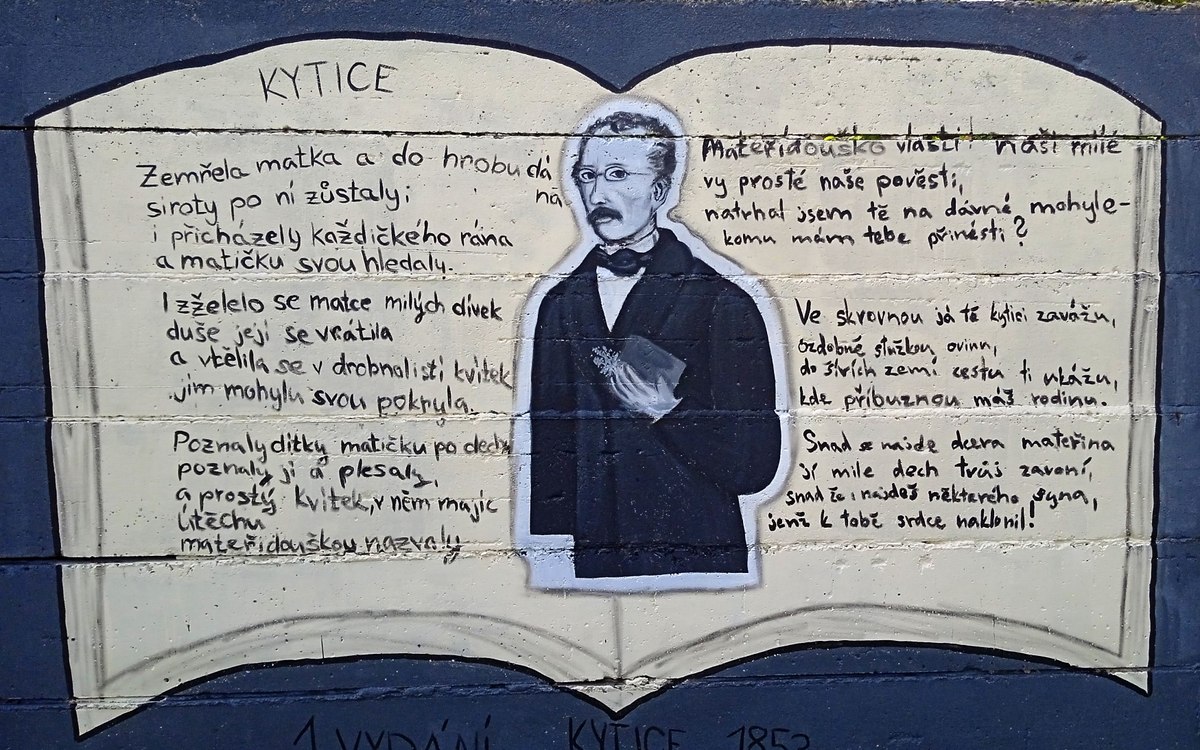 KYTICE
Zemřela matka a do hrobu dá
ná
siroty po ní zůstaly;
i přicházely každičkého rána
a matičku svou hledaly.
I zželelo se matce milých dívek
duše její se vrátila
a vtělila se v drobnolistí kvítek
jím mohylu svou pokryla.
Poznaly dítky matičku po dechu
poznaly ji a plesaly,
a prostý kvítek, v něm majíc
útěchu
mateřídouškou nazvaly
Mateřídouško vlasti naší milé
vy prosté naše pověsti,
natrhal jsem tě na dávné mohyle-
komu mám tebe přinésti?
Ve skrovnou já tě kytici zavážu,
ozdobně stužkou ovinu,
do širých zemí cestu ti ukážu,
kde příbuznou máš rodinu.
Snad se najde dcera mateřina
jí mile dech tvůj zavoní,
snad že i najdeš některého syna,
jenž k tobě srdce nakloní!
1 VYDÁNÍ KYTICE 1853